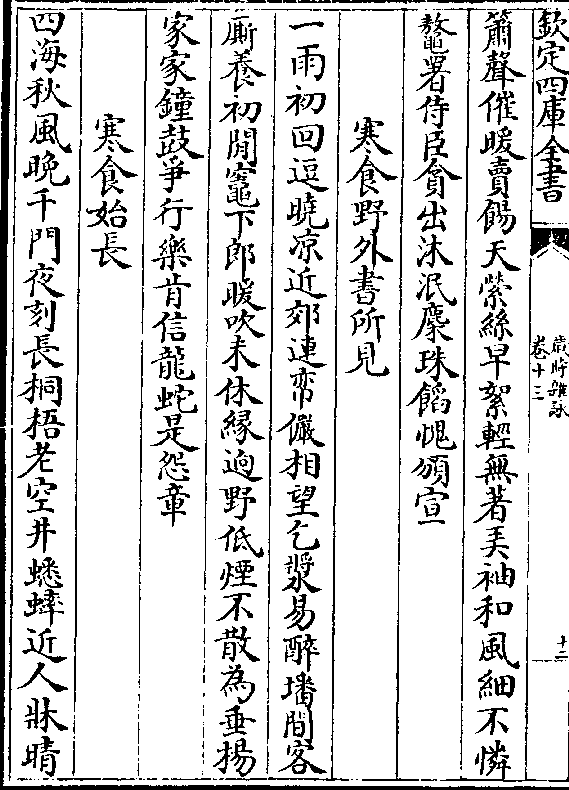 欽定四庫全書
歲時雜詠
卷十三
十二
簫聲催暖賣餳天縈絲早絮輕無著美袖和風細不憐
鼇署侍臣貪出沐泯麋珠饀愧頒宣
寒食野外書所見
一雨初回逗曉凉近郊連帟儼相望乞漿易醉墦間客
厮養初閒竈下郎暖吹未休緣逈野低煙不散為垂楊
家家鐘鼓爭行樂肯信龍蛇是怨章
寒食始長
四海秋風晚千門夜刻長桐梧老空井蟋蟀近人牀晴